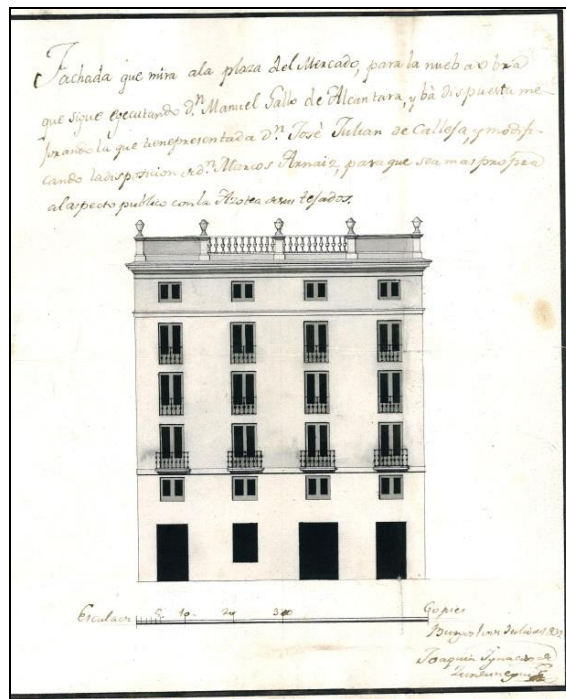 Fachada que mira ala plaza del Mercado, para la nueba obra
que sigue egecutando d.n Manuel Gallo de Alcantara, y bà dispuesta me-
jorando la que tiene presentada d.n José Julian de Calleja, y modifi-
cando la disposicion de d.n Marcos Arnaiz, para que sea mas propia
al aspecto publico con la Azotea de sus tejados.
Escala de 5. 10 20 30 60 pies
Burgos Julio
Joaquin Ygnacio de